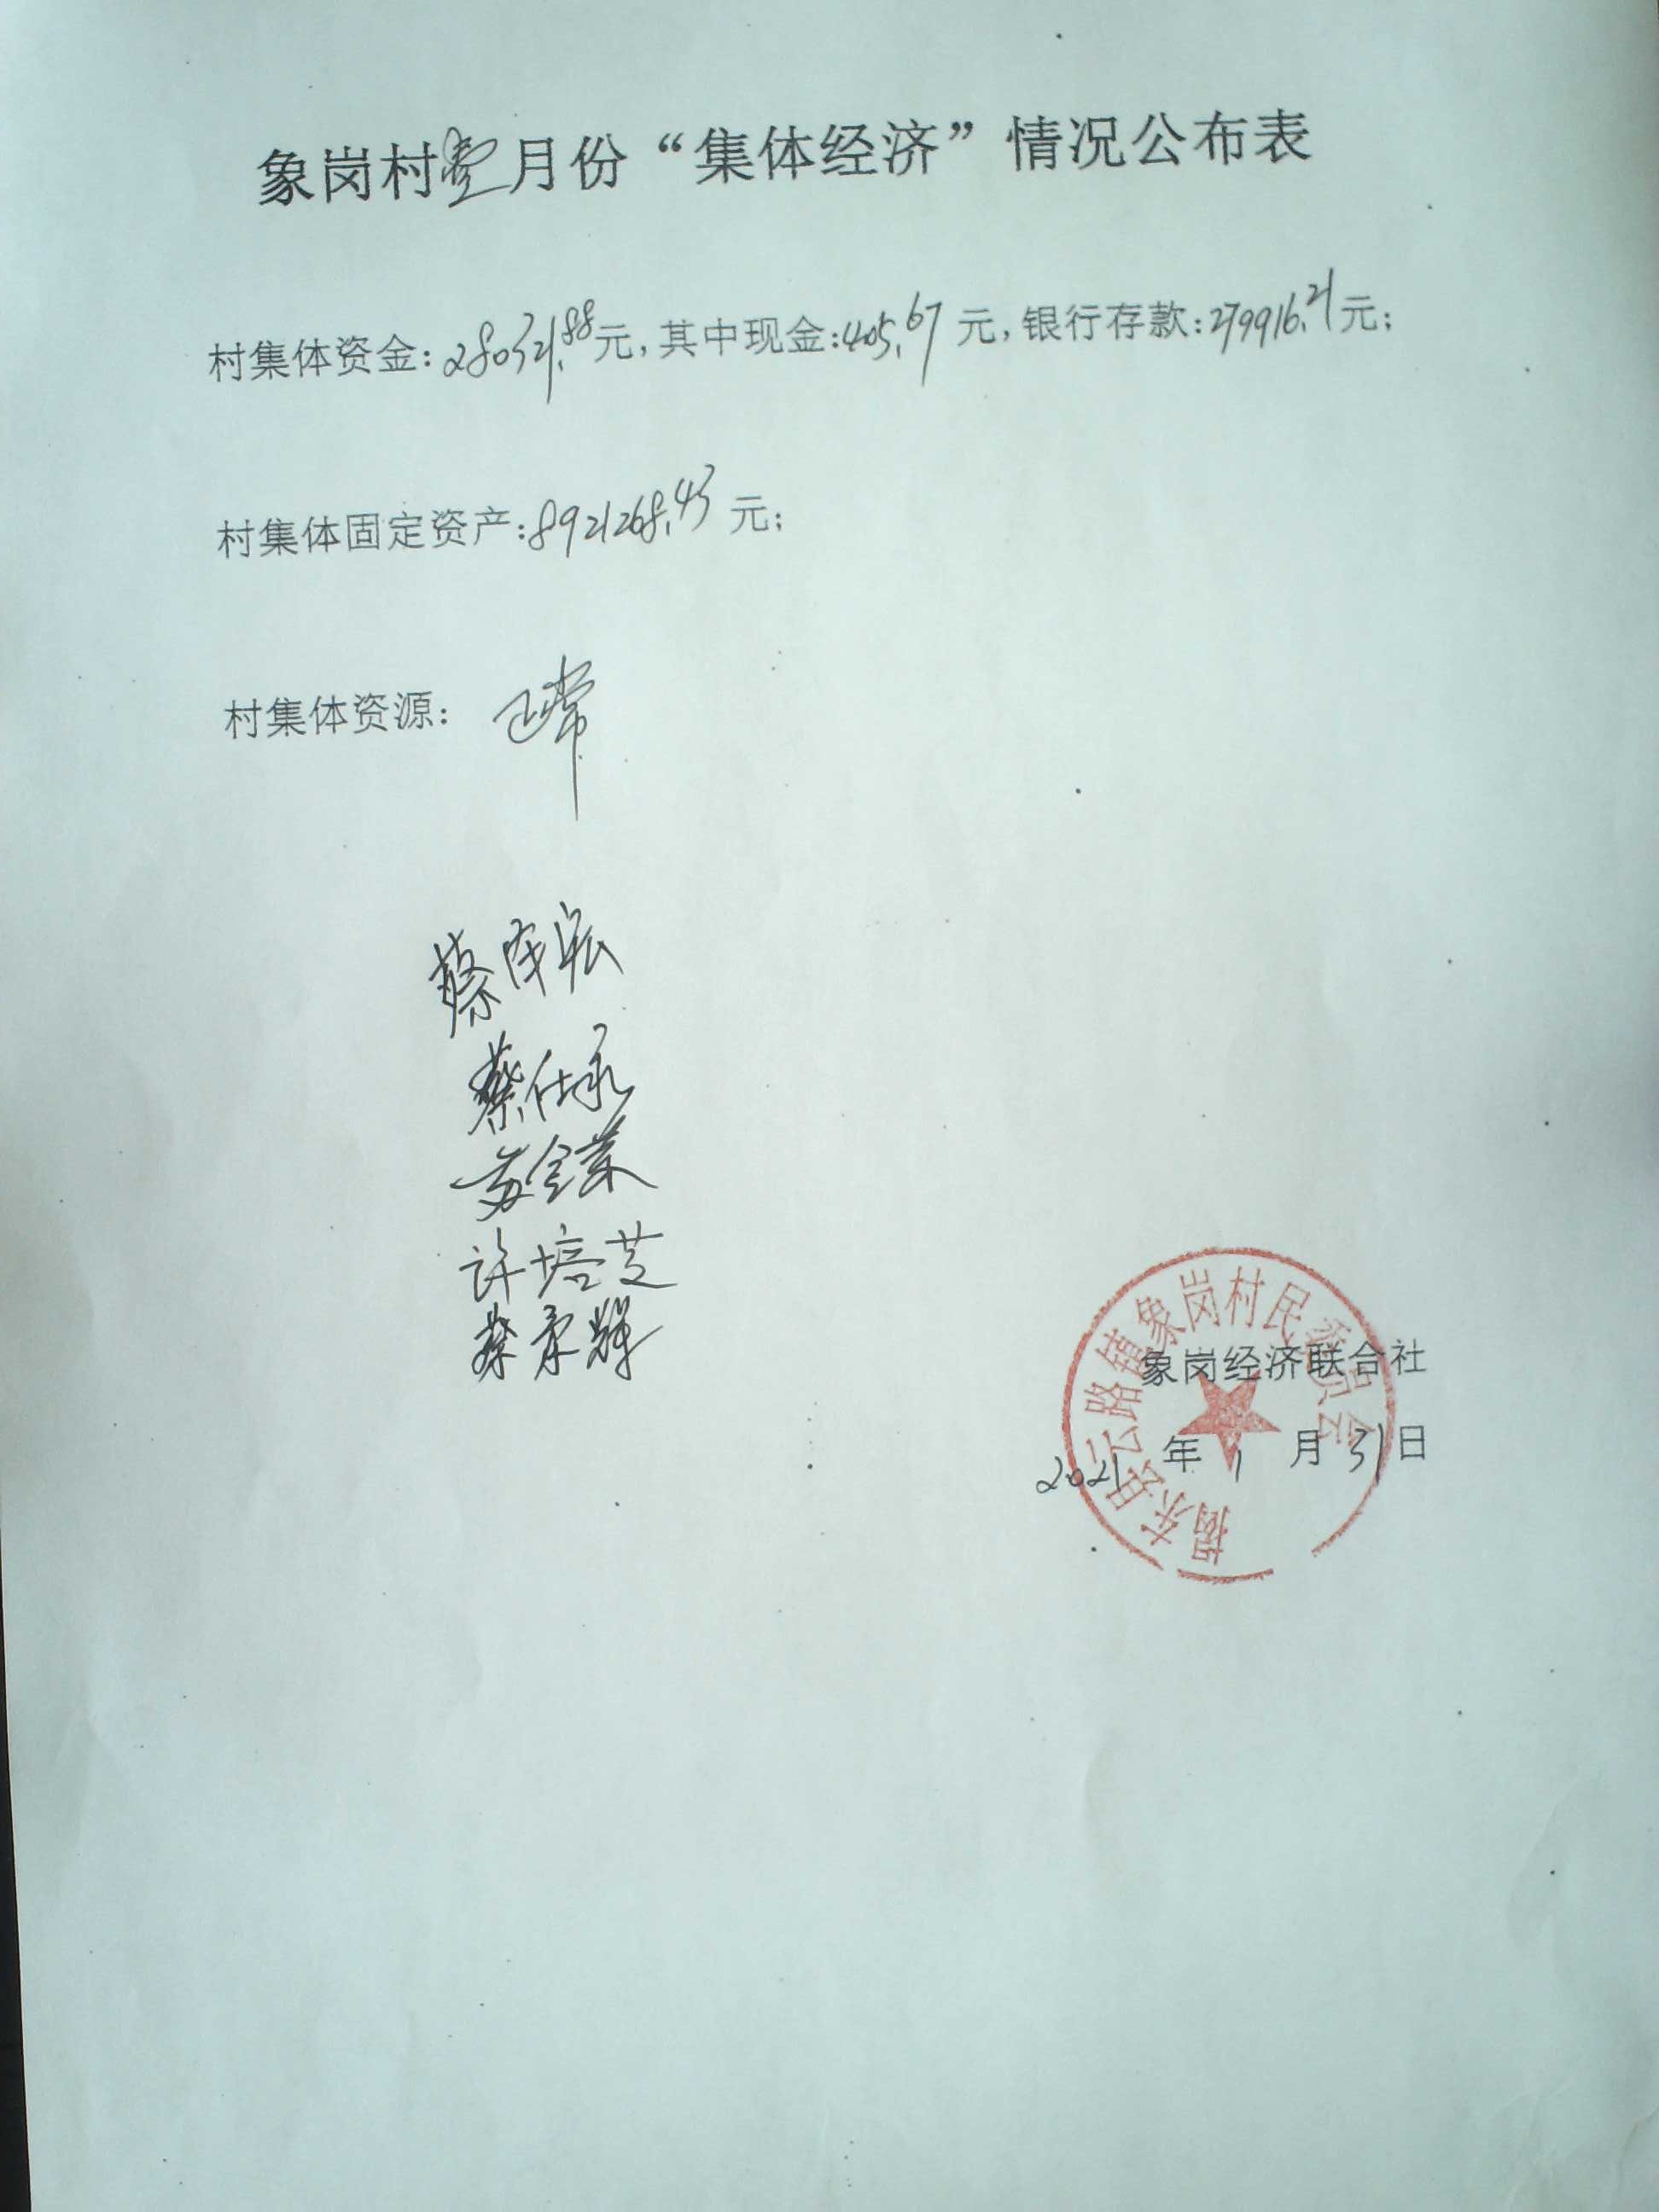 象岗村壹月份“集体经济”情况公布表
村集体资金:280321.88元,其中现金:405.67元,银行存款:279916.21元;
村集体固定资产:8921268.43元;
村集体资源: 正常
蔡
蔡仕永
许培芝
蔡
揭东县云路镇象岗村民委员会
象岗经济联合社
2021年1月31日